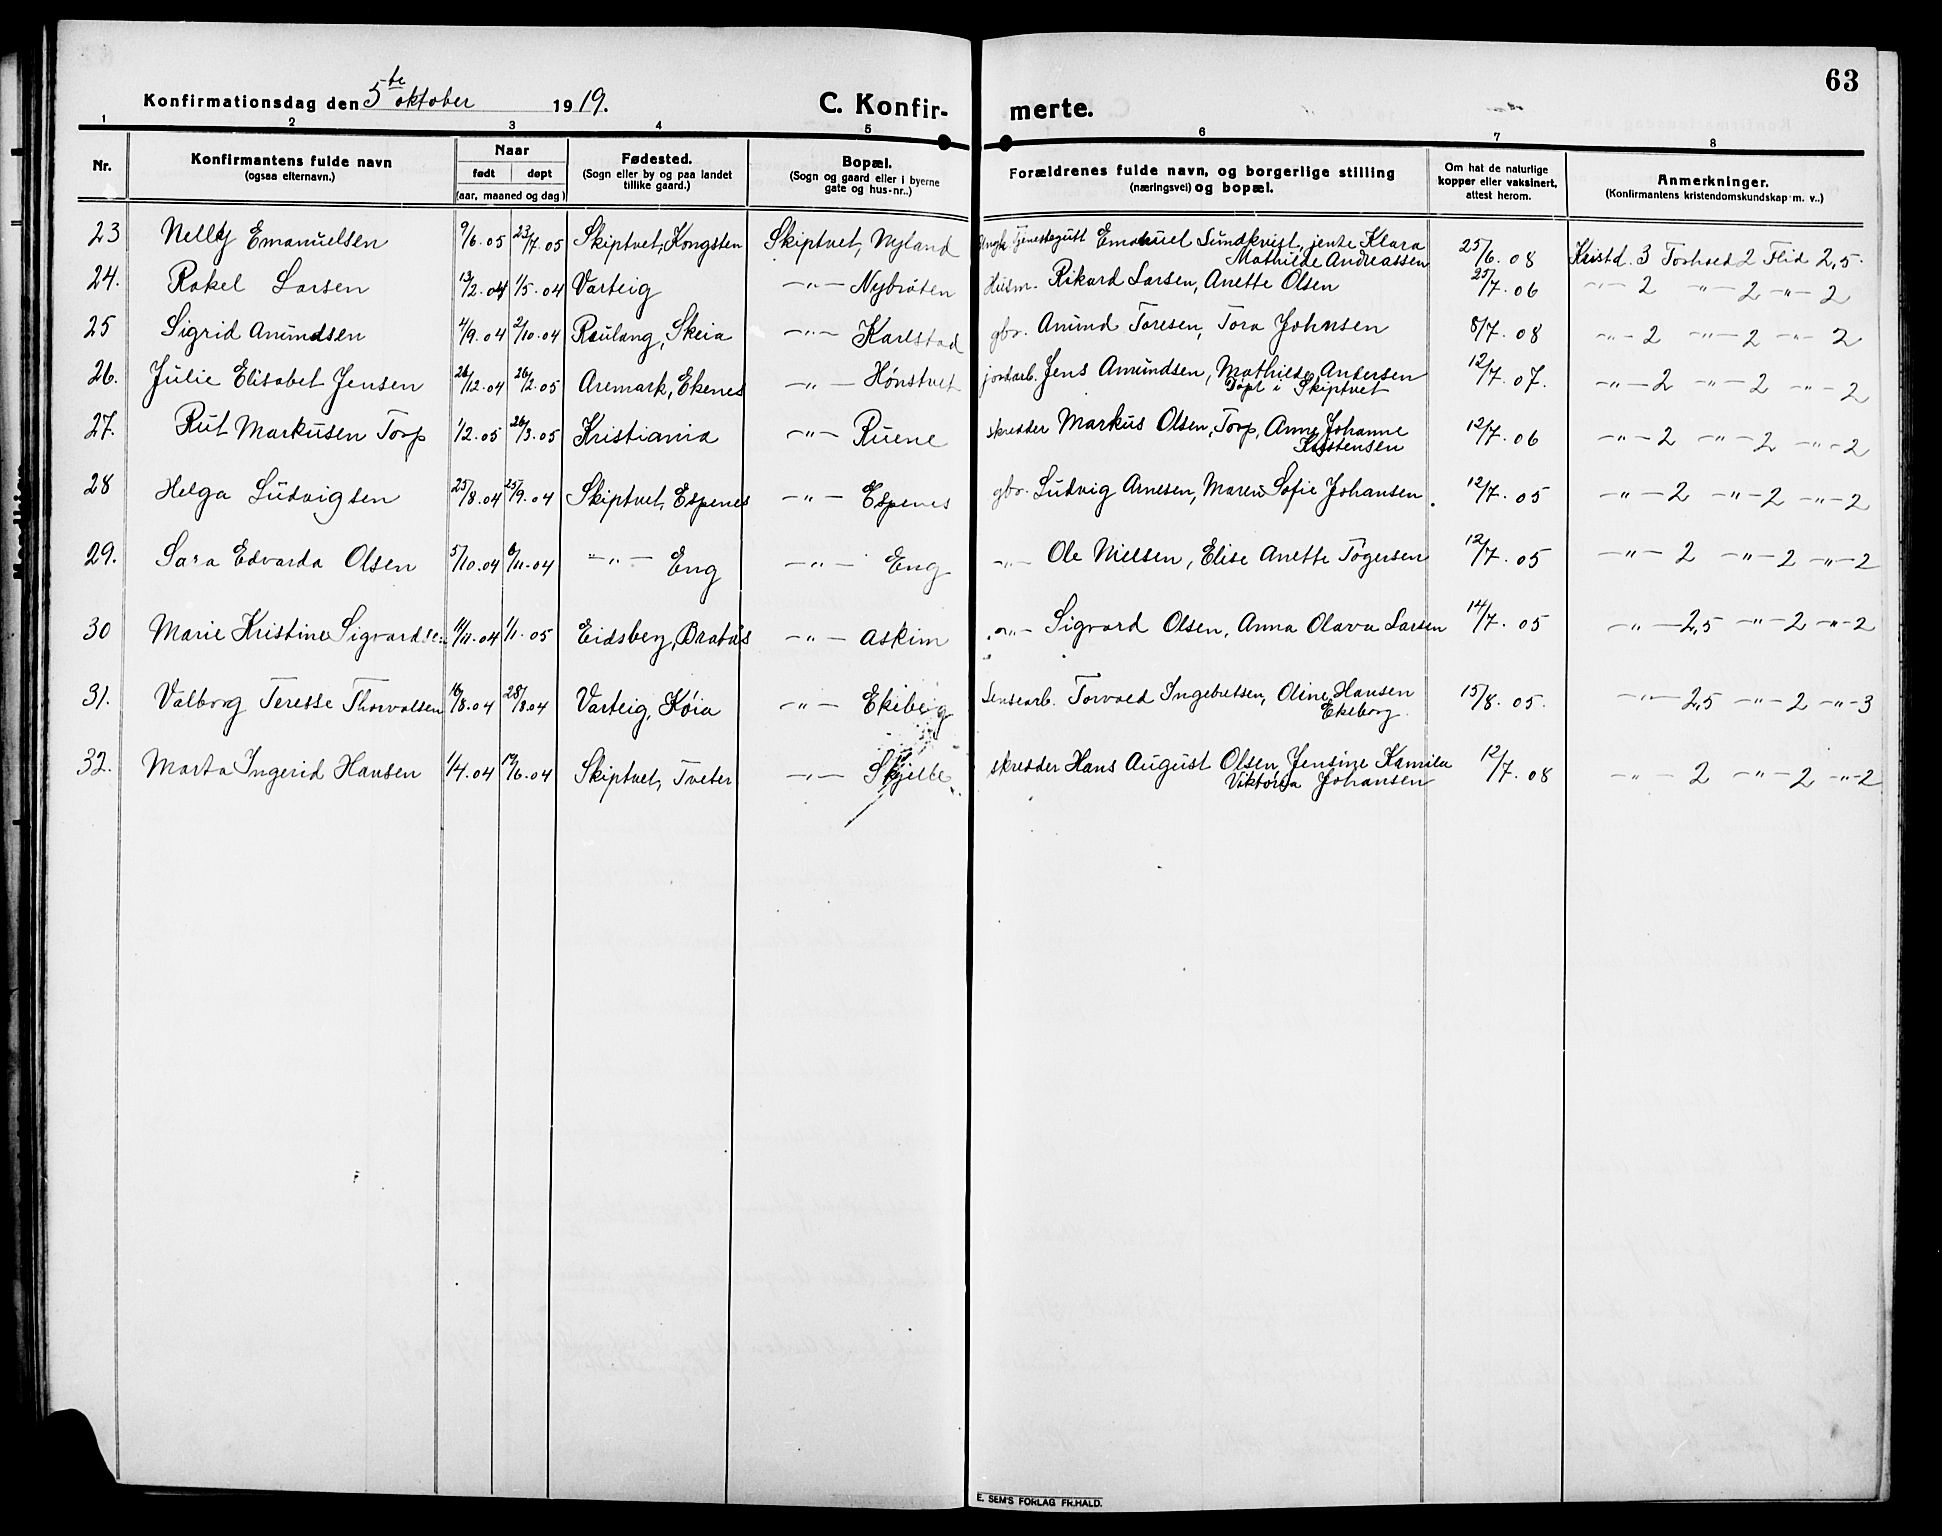 63
Konfirmationsdag den 5te oktober 1919. C. Konfirmerte.
1 2 3 4 5 6 7 8
Nr. Konfirmantens fulde navn (ogsaa efternavn.) Naar født døpt (aar, maaned og dag) Fødested. (Sogn eller by og paa landet tillike gaard.) Bopæl. (Sogn og gaard eller i byerne gate og hus-nr..) Forældrenes fulde navn, og borgerlige stilling (næringsvei) og bopæl. Om hat de naturlige kopper eller vaksinert, attest herom. Anmerkninger. (Konfirmantens kristendomskundskap m. v..)
23 Nelly Emanuelsen 9/6.05 23/7.05 Skiptvet, Kongsten Skiptvet, Nyland Ungk. Tjenestegutt Emanuel Sundkvist, jente Klara Mathilde Andreassen 25/6.08 Kristd. 3 Forhold 2 Flid 2,5.
24. Rakel Larsen 13/2.04 1/5.04 Varteig -"- Nybråten Husm. Rikard Larsen, Anette Olsen 25/7.06 -"- 2 -"- 2 -"- 2
25 Sigrid Anundsen 4/9.04 2/10.04 Raulang, Skeia -"- Karlstad gbr. Anund Toresen, Tora Johnsen 8/7.08 -"- 2 -"- 2 -"- 2
26. Julie Elisabet Jensen 26/12.04 26/2.05 Aremark, Ekenes -"- Hønstvet jordarb. Jens Amundsen, Mathilde Andersen Døpt i Skiptvet 12/7.07. -"- 2 -"- 2 -"- 2
27. Rut Markusen Torp 1/2.05 26/3.05 Kristiania -"- Ruene skredder Markus Olsen, Torp, Anne Johanne Kristensen 12/7.06 -"- 2 -"- 2 -"- 2
28 Helga Ludvigsen 25/8.04 25/9.04 Skiptvet, Espenes -"- Espenes gbr. Ludvig Arnesen, Maren Sofie Johansen. 12/7.05 -"- 2 -"- 2 -"- 2
29. Sara Edvarda Olsen 5/10.04 6/11.04 -"- Eng -"- Eng -"- Ole Nielsen, Elise Anette Tøgersen 12/7.05 -"- 2 -"- 2 -"- 2
30 Marie Kristine Sigvardsen 11/11.04 1/1.05 Eidsberg, Bratås -"- Askim -"- Sigvard Olsen, Anna Olava Larsen 14/7.05 -"- 2,5 -"- 2 -"- 2
31. Valborg Teresse Thorvalsen 16/8.04 28/8.04 Varteig, Køia -"- Ekeberg Torvald Ingebretsen, Oline Hansen Ekeberg. 15/8.05. -"- 2,5 -"- 2 -"- 3
32. Marta Ingerid Hansen 1/4.04 19/6.04 Skiptvet, Tveter -"- Skjelle skredder Hans August Olsen, Jensine Kamilla Viktoria Johansen 12/7.08 -"- 2 -"- 2 -"- 2
E. SEM'S FORLAG FR.HALD.